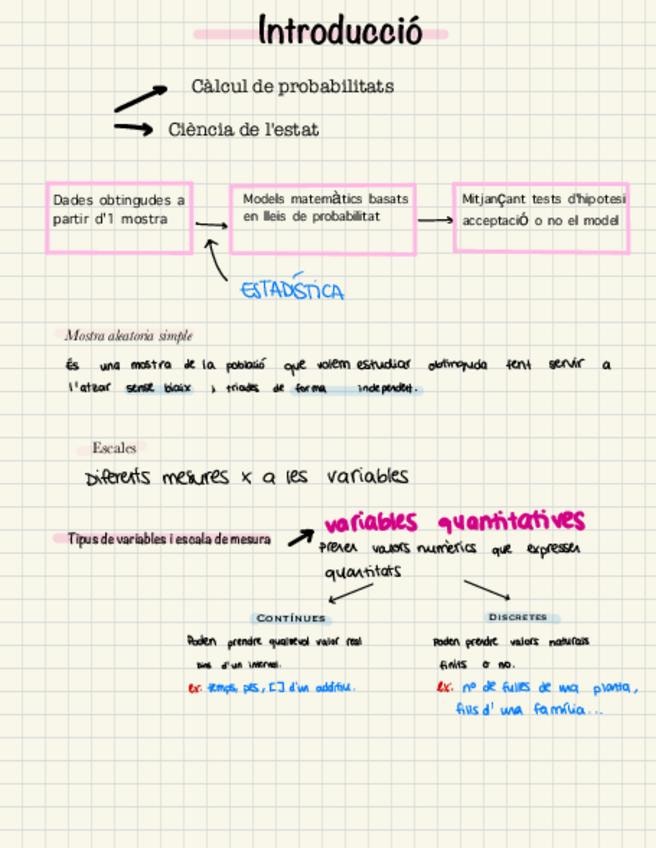 Introducció
Càlcul de probabilitats
Ciència de l'estat
Dades obtingudes a
partir d'1 mostra
Models matemàtics basats
en lleis de probabilitat
Mitjançant tests d'hipotesi
acceptació o no el model
ESTADÍSTICA
Mostra aleatoria simple
És una mostra de la població que volem estudiar obtinguda fent servir a
l'atzar sense biaix i triades de forma independent.
Escales
Diferents mesures x a les variables
Tipus de variables i escala de mesura
variables quantitatives
Prenen valors numèrics que expressen
quantitats
CONTÍNUES
Poden prendre qualsevol valor real
dins d'un interval.
ex. temps, pes, [] d'un additiu.
DISCRETES
Poden prendre valors naturals
finits o no.
ex. nº de fulles de una planta,
fills d'una família...